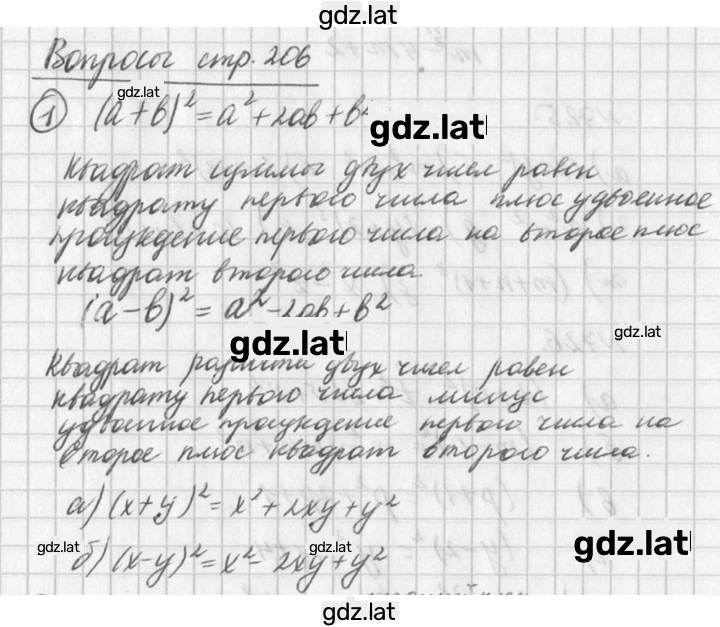 gdz.lat
Вопросы стр. 206
gdz.lat
① (a+b)² = a² + 2ab + b²
gdz.lat
Квадрат суммы двух чисел равен
квадрату первого числа плюс удвоенное
произведение первого числа на второе плюс
квадрат второго числа.
(a-b)² = a² - 2ab + b²
gdz.lat
gdz.lat
Квадрат разности двух чисел равен
квадрату первого числа минус
удвоенное произведение первого числа на
второе плюс квадрат второго числа.
а) (x+y)² = x² + 2xy + y²
gdz.lat
б) (x-y)² = x² - 2xy + y²
gdz.lat
gdz.lat
gdz.lat